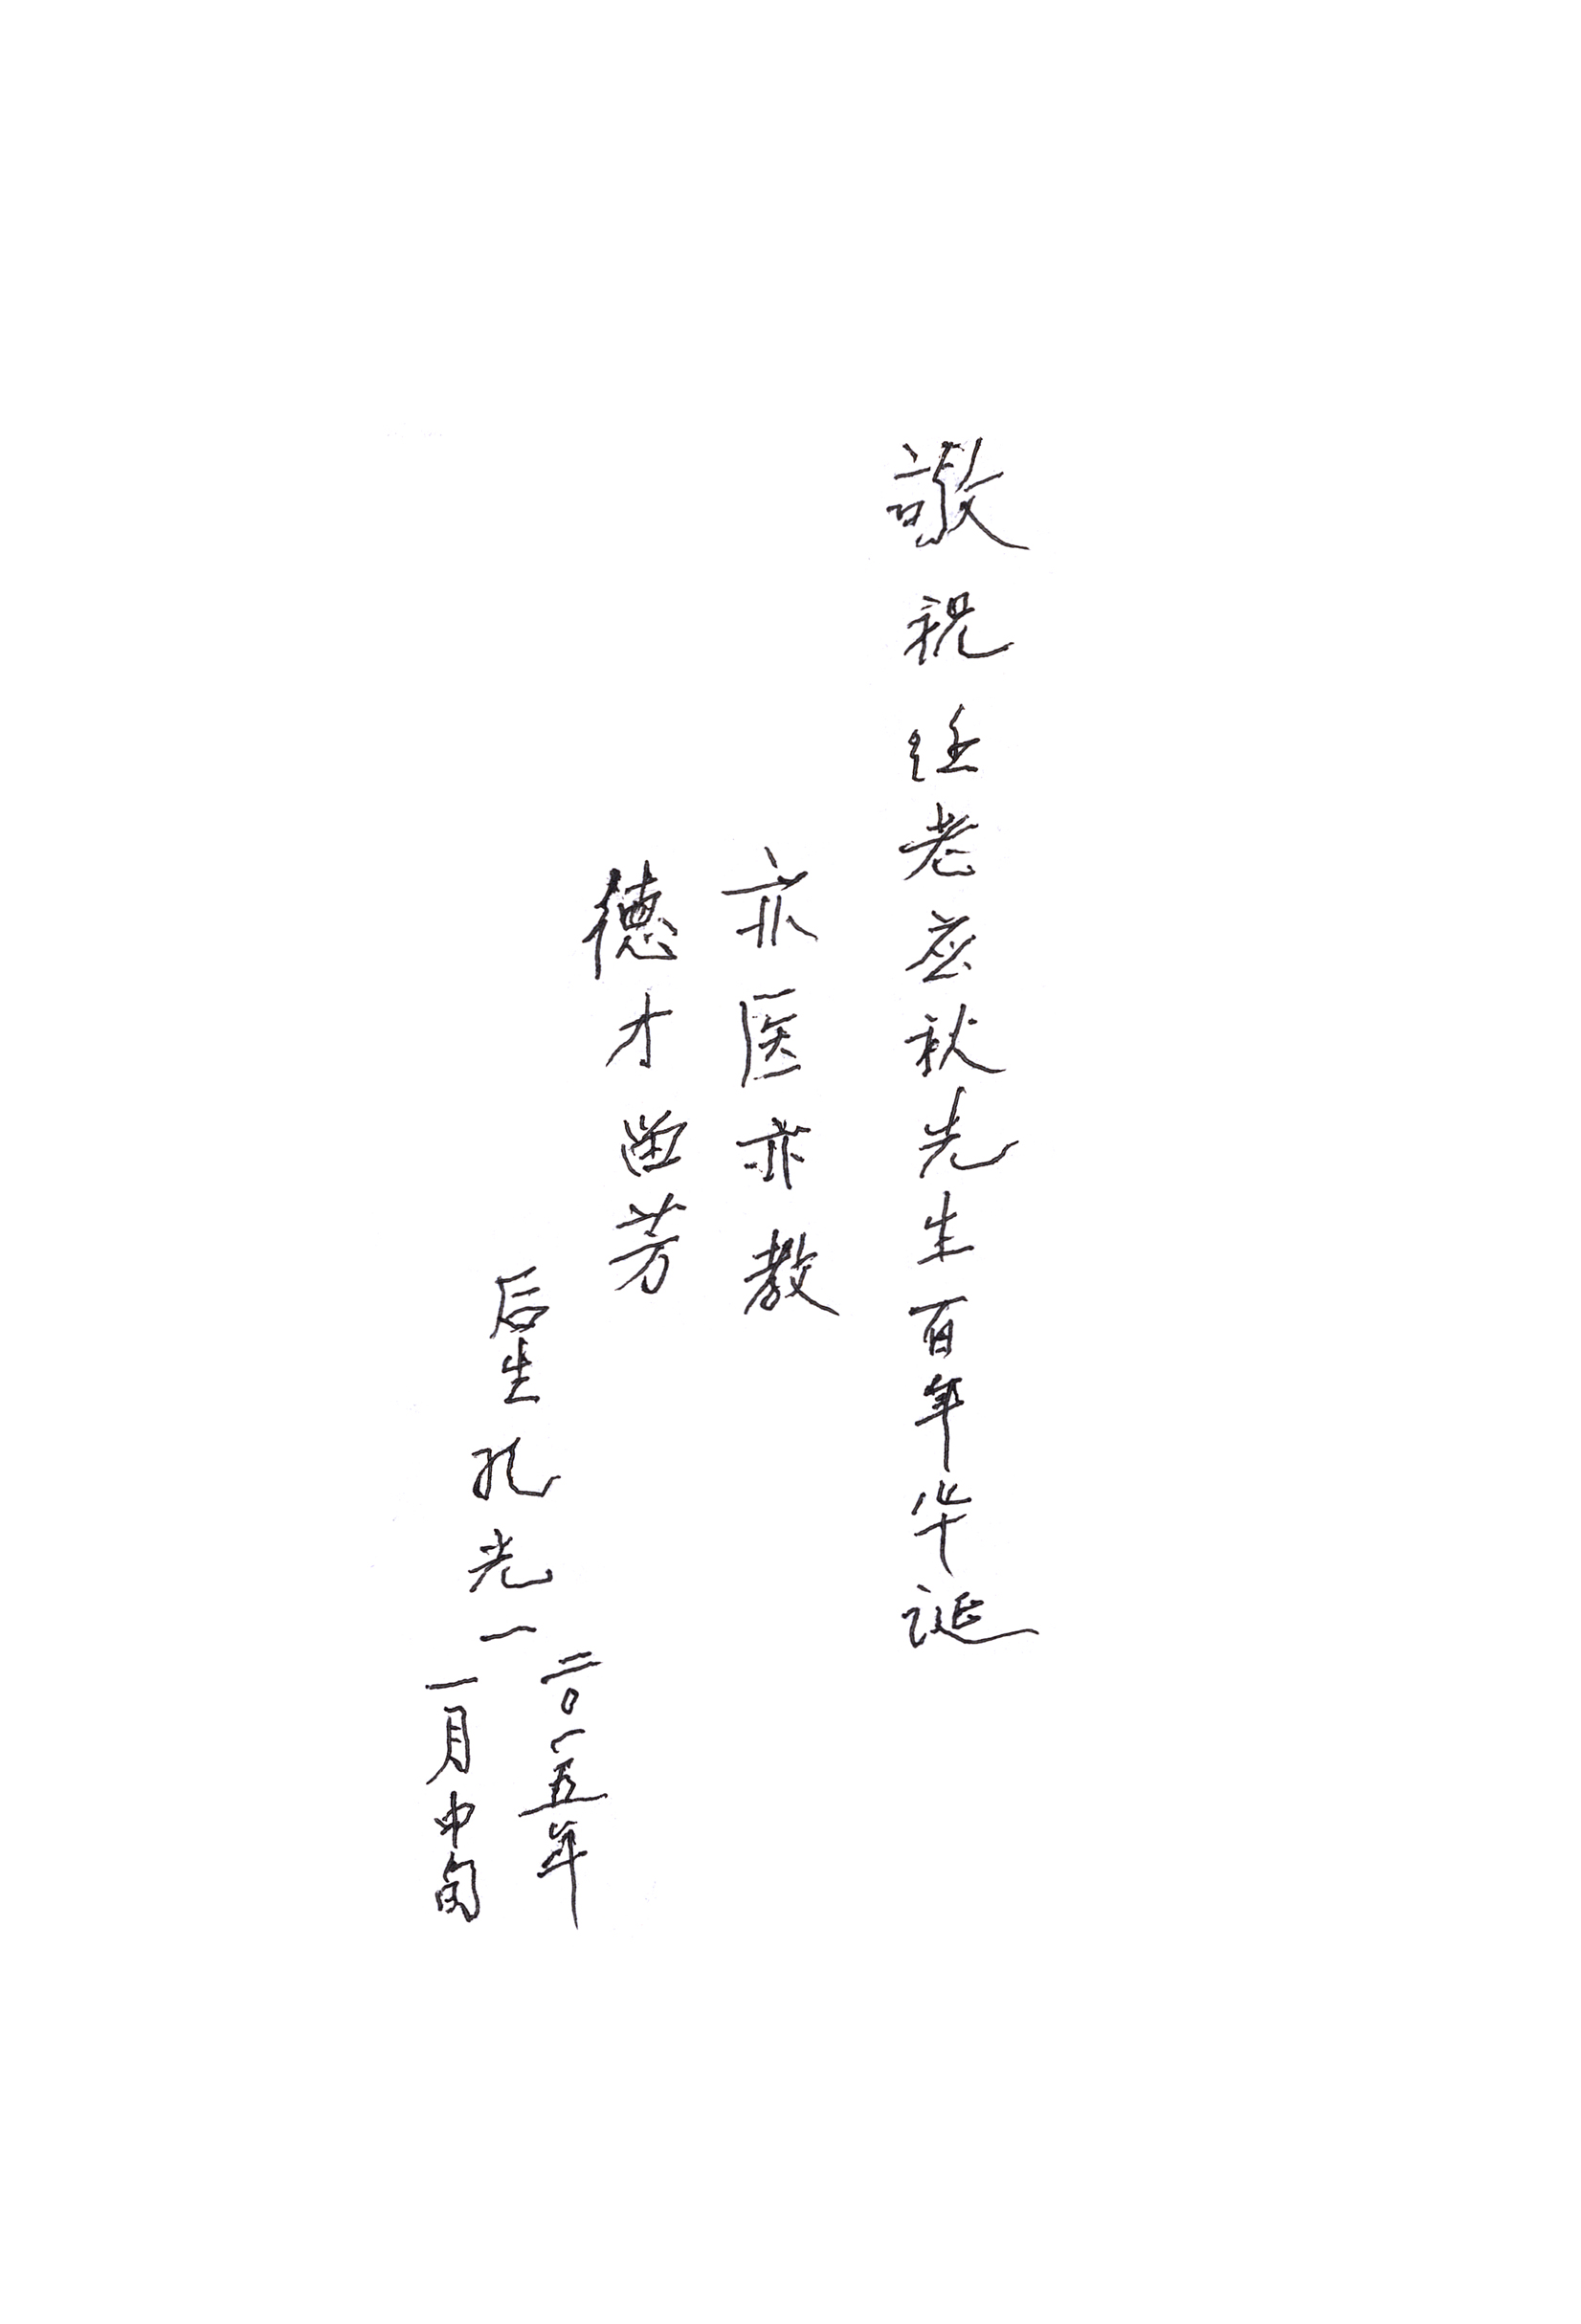 敬祝任老应秋先生百年华诞
亦医亦教
德才留芳
后生孔光一
二〇一五年
一月中旬